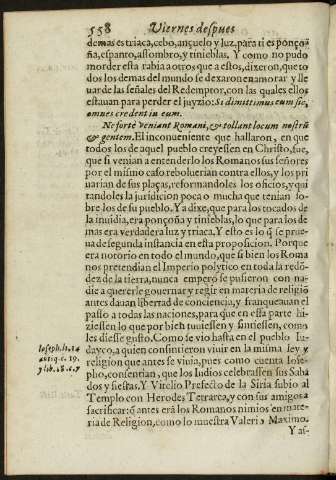 558 Viernes despues
demas es triaca, cebo, ançuelo y luz, para ti es ponçoña,
ña, espanto, assombro, y tinieblas. Y como no pudo
morder esta rabia a otros que a estos, dixeron, que todos
dos los demas del mundo se dexaron enamorar y lle
uar de las señales del Redemptor, con las quales ellos
estauan para perder el juyzio: Si dimittimus eum sic,
omnes credent in eum.
Ne forte veniant Romani, & tollant locum nostrũ
& gentem. El inconueniente que hallaron, en que
todos los de aquel pueblo creyessen en Christo, fue,
que si venian a entenderlo los Romanos sus señores
por el mismo caso reboluerian contra ellos, y los pri
uarian de sus plaças, reformandoles los oficios, y qui
tandoles la juridicion poca o mucha que tenian so-
bre los de su pueblo. Y a dixe, que para los tocados de
la inuidia, era ponçoña y tinieblas, lo que para los de
mas era verdadera luz y triaca. Y esto es lo q̃ se prue
ua de segunda instancia en esta proposicion. Porque
era notorio en todo el mundo, que si bien los Roma
nos pretendian el Imperio polytico en toda la redõ-
dez de la tierra, nunca empero se pusieron con na-
die a quererle gouernar y regir en materia de religiõ
antes dauan libertad de conciencia, y franqueauan el
passo a todas las naciones, para que en essa parte hi-
ziessen lo que por bien tuuiessen y sintiessen, como
les diesse gusto. Como se vio hasta en el pueblo Iu-
dayco, a quien consintieron viuir en la misma ley y
religion que antes se viuia, pues como cuenta Iose-
pho, consentian, que los Iudios celebrassen sus Saba
dos y fiestas. Y Vitelio Prefecto de la Siria subio al
Templo con Herodes Tetrarca, y con sus amigos a
sacrificar: q̃ antes erã los Romanos nimios en mate-
ria de Religion, como lo muestra Valerio Maximo.
Y as-
Ioseph. li. 14
antiq. c. 19.
y lib. 18. c. 7